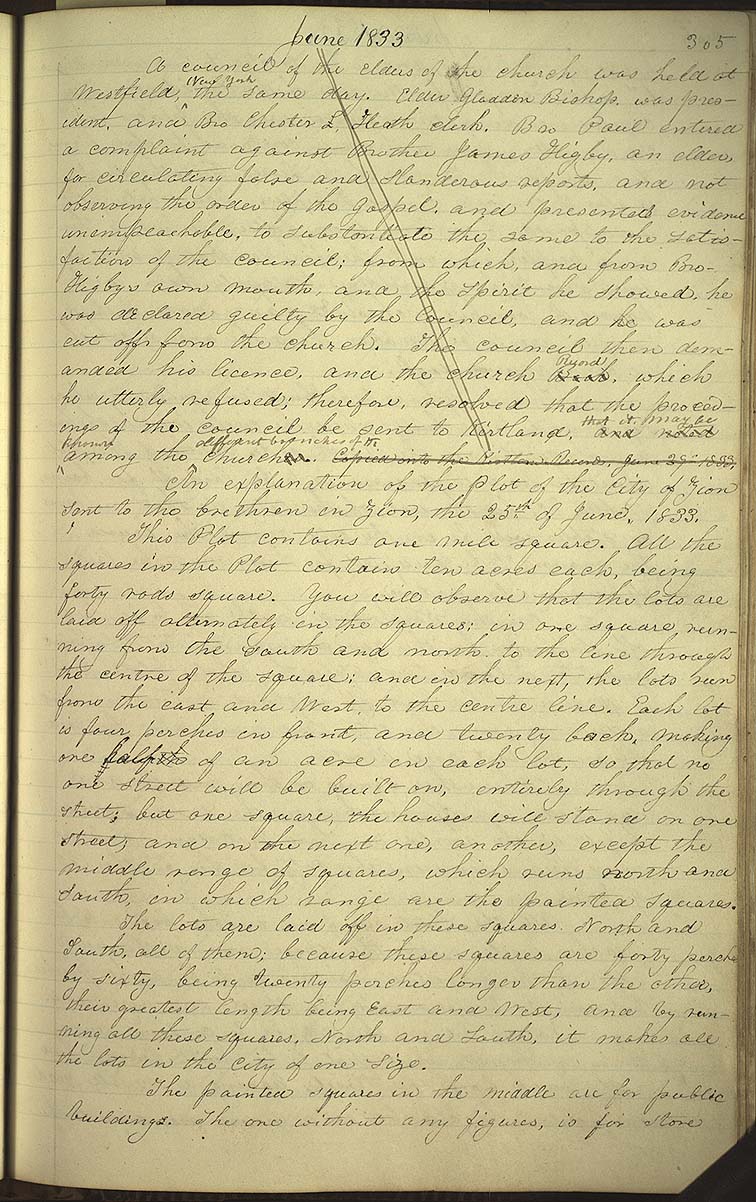 June 1833
305
A council of the elders of the church was held at
Westfield, (New York the same day. Elder Gladden Bishop was pres-
ident, and Bro Chester L. Heath clerk. Bro Paul entered
a complaint against Brother James Higby, an elder,
for circulating false and slanderous reports, and not
observing the order of the gospel, and presented evidence
unimpeachable, to substantiate the same to the satis-
faction of the council; from which, and from Bro-
Higbys own mouth, and the Spirit he showed, he
was declared guilty by the Council, and he was
cut off from the church. The council then dem-
anded his licence, and the church Record, which
he utterly refused; therefore, resolved that the proceed-
ings of the council be sent to Kirtland, that it may be
known among the different branches of the church. Copied into the Kirtland Record, June 29th 1833.
An explanation of the Plot of the City of Zion
sent to the brethren in Zion, the 25th of June, 1833.
This Plot contains one mile square. All the
squares in the Plot contain ten acres each, being
forty rods square. You will observe that the lots are
laid off alternately in the squares; in one square run-
ning from the South and north to the line through
the centre of the square; and in the next, the lots run
from the east and West, to the centre line. Each lot
is four perches in front, and twenty back, making
one half of an acre in each lot, so that no
one street will be built on, entirely through the
street; but one square, the houses will stand on one
street, and on the next one, another, except the
middle range of squares, which runs north and
South, in which range are the painted squares.
The lots are laid off in these squares North and
South, all of them; because these squares are forty perches
by sixty, being twenty perches longer than the other,
their greatest length being East and West, and by run-
ning all these squares, North and South, it makes all
the lots in the City of one size.
The painted squares in the middle are for public
buildings. The one without any figures, is for store